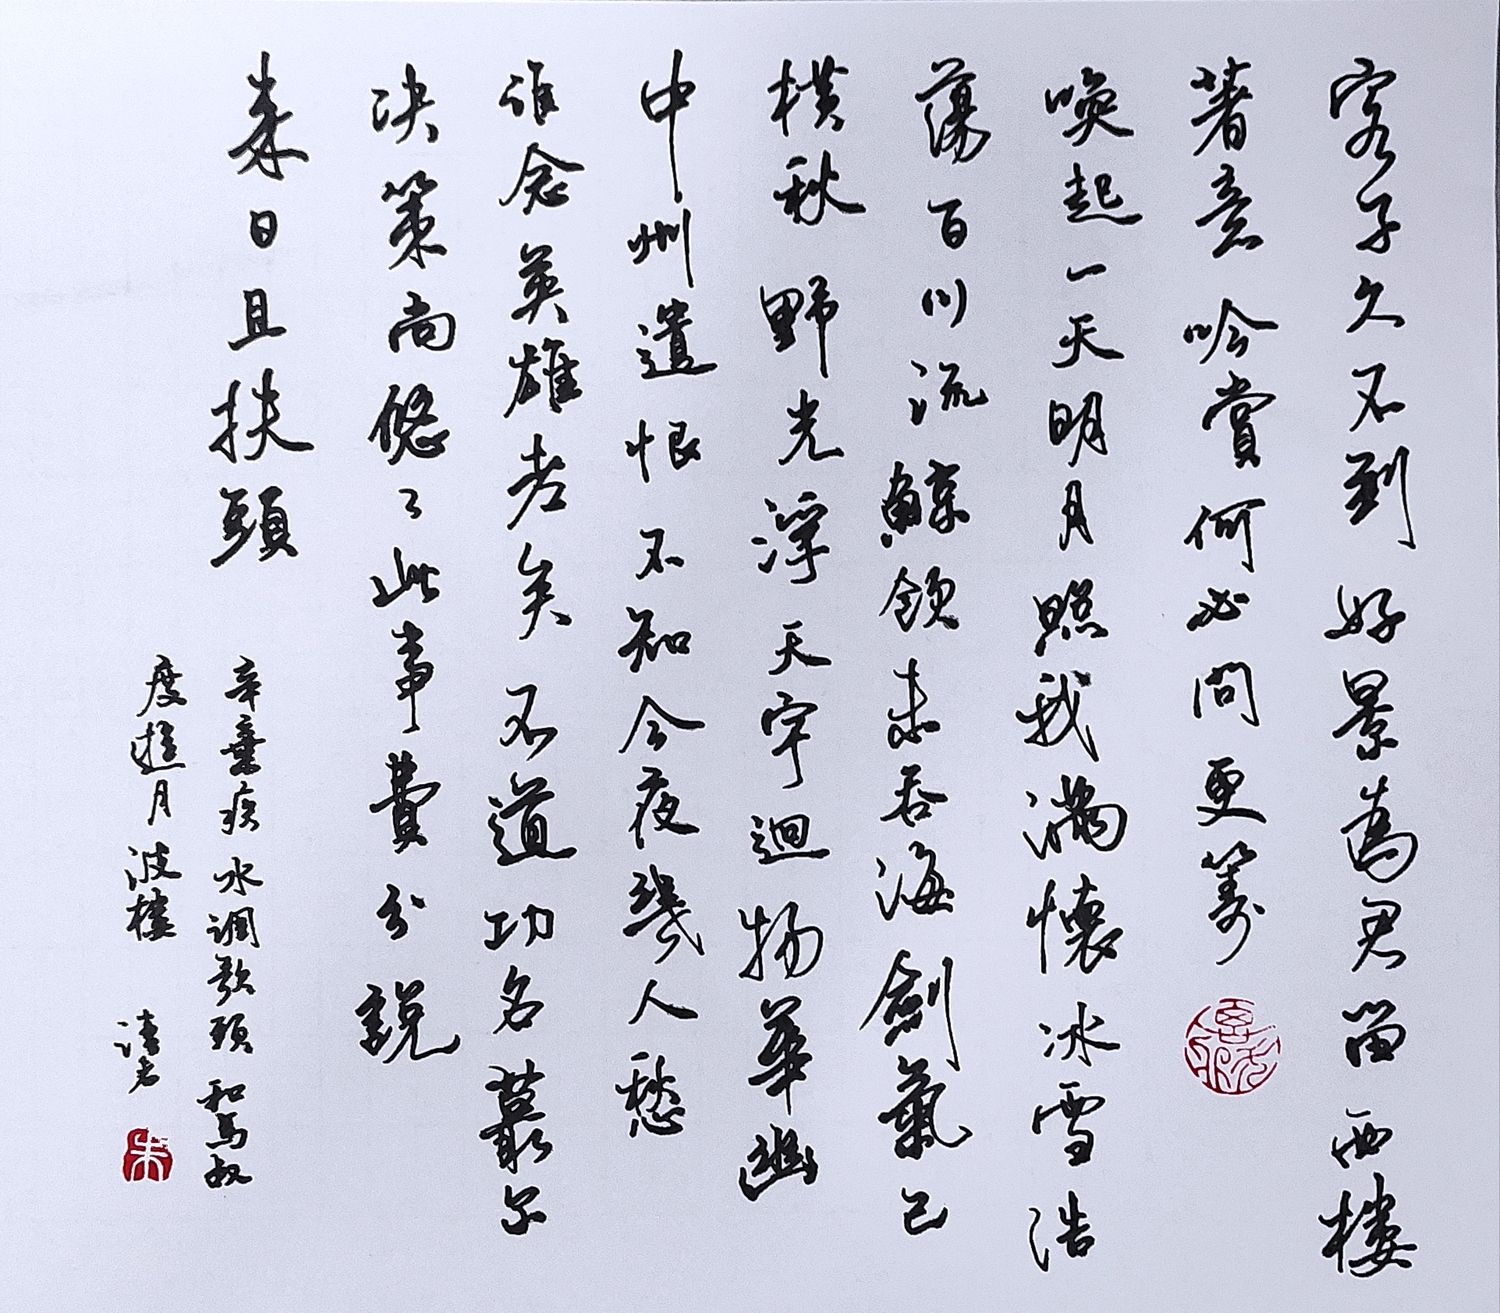 客子久不到好景為君留西樓
著意吟賞何必問更籌
喚起一天明月照我滿懷冰雪浩
蕩百川流鯨飲未吞海劍氣已
橫秋野光浮天宇迴物華幽
中州遺恨不知今夜幾人愁
誰念英雄老矣不道功名蕞尔
决策尚悠々此事費分說
來日且扶頭
辛棄疾水調歌頭和馬叔
度遊月波樓
朱